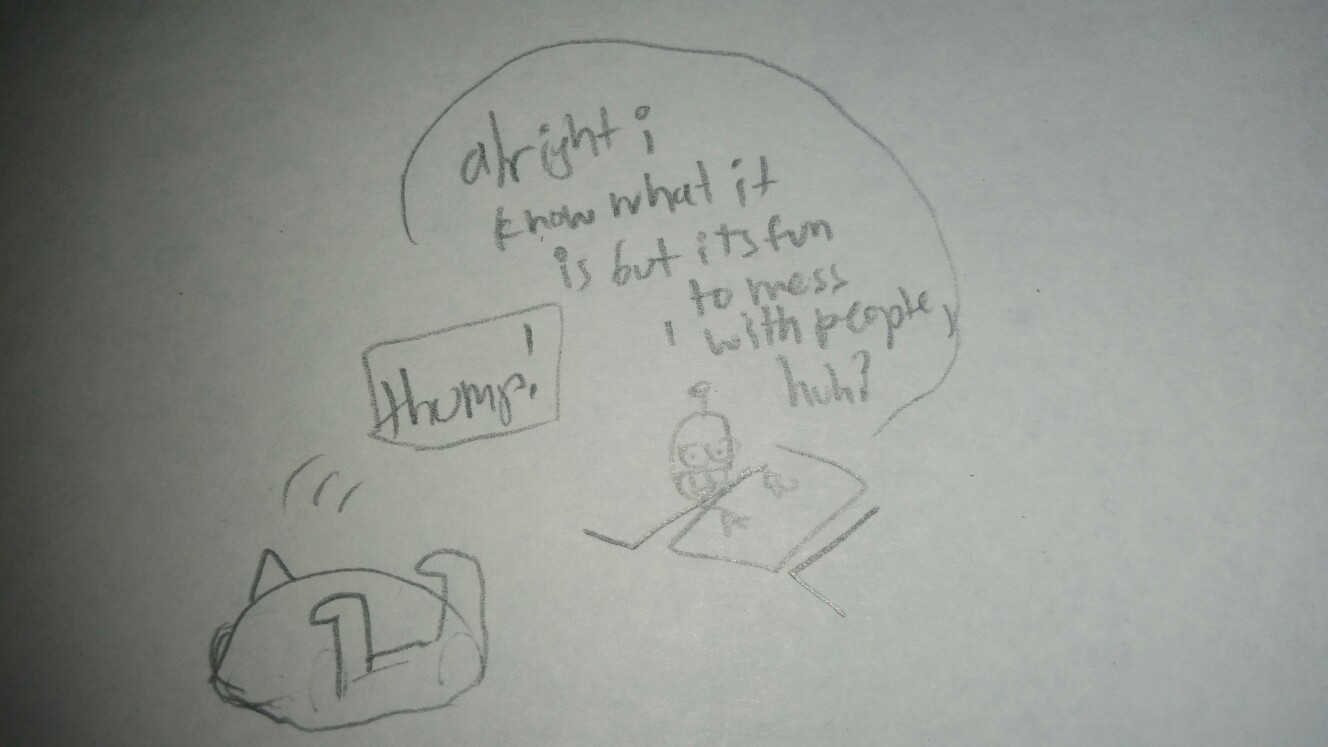 alright i
know what it
is but its fun
to mess
with people,
huh?
thump!